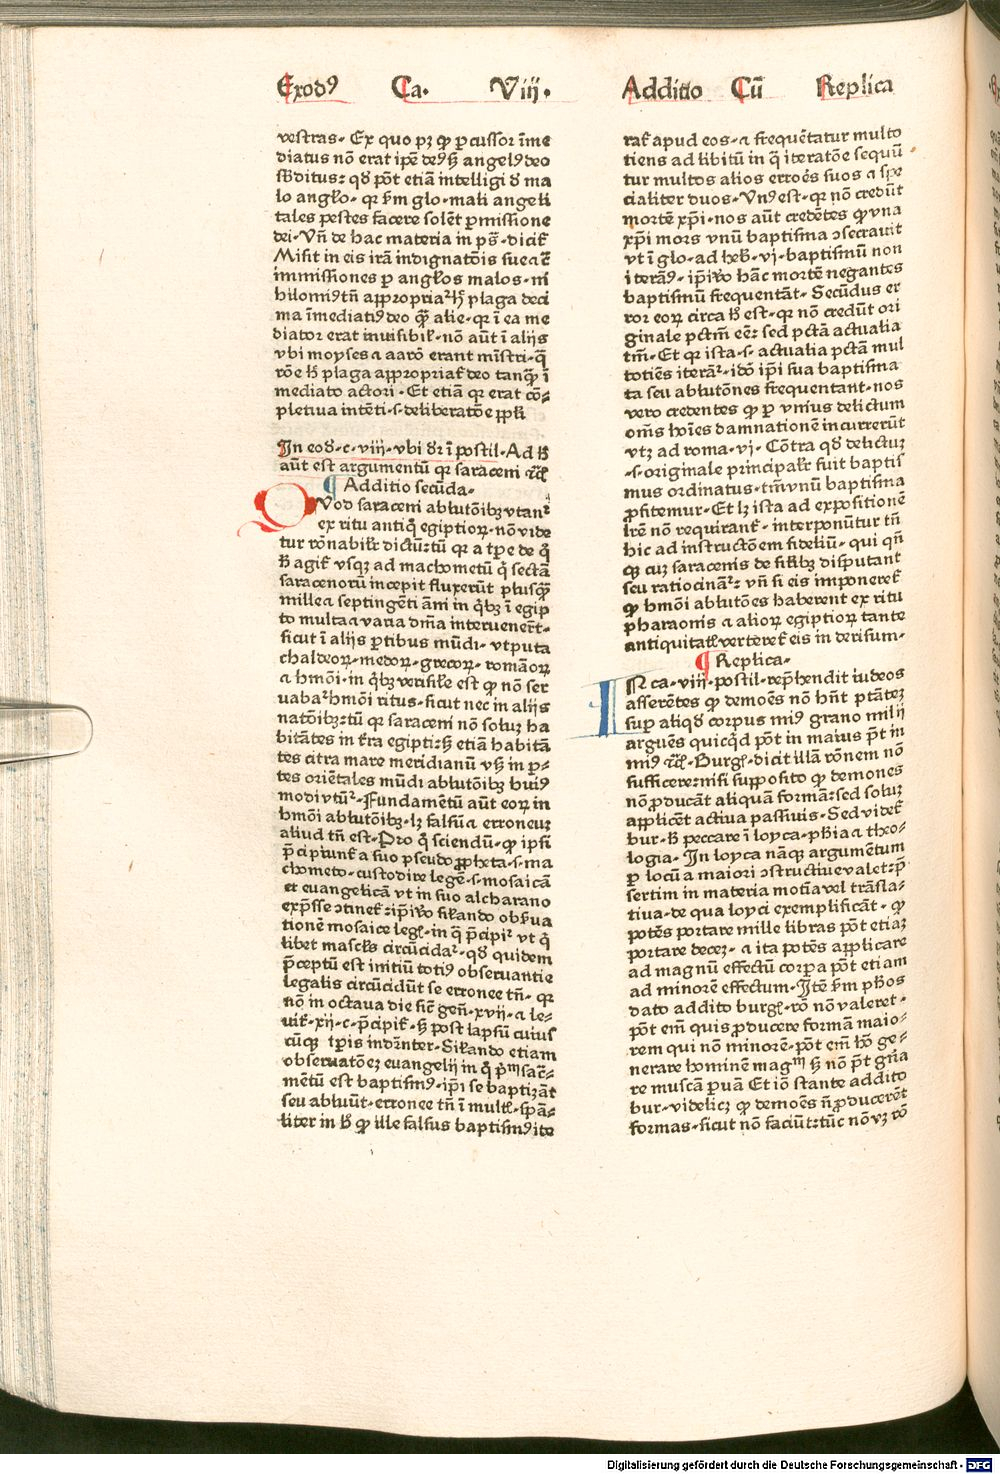 Exodꝰ Ca. Viij. Additio Cū Replica
vestras. Ex quo pꝫ ꝙ ꝑcussor īme
diatus nō erat ipē deꝰ ſꝫ angelꝰ deo
sb̄ditus: qd̄ pōt etiā intelligi d̄ ma
lo angl̄o. qꝛ ẜm glo. mali angeli
tales pestes facere solēt ꝑmissione
dei. Vn̄ de hac materia in ps̄. dicit᷑
Misit in eis irā indignatōis sue ⁊ c̄
immissiones ꝑ angl̄os malos. ni
hilomiꝰtn̄ appropriat᷑ h̄ plaga deci
ma īmediatiꝰ deo qͣꝫ alie. qꝛ ī ea me
diator erat inuisibil̄. nō aūt ī alijs
vbi moyses ⁊ aarō erant mīstri. q̄
rōe h̄ plaga appropriat᷑ deo tanqͣꝫ ī
mediato actori. Et etiā qꝛ erat cō⸗
pletiua intēti. s. deliberatōe ppl̄i
In eod̄. c. viij. vbi dr̄ ī postil. Ad h̄
aūt est argumentū qꝛ saraceni ⁊c̄
¶ Additio secūda.
Quod saraceni ablutōibꝫ vtant᷑
ex ritu antiqͦꝝ egiptioꝝ. nō vide
tur rōnabilr̄ dictū: tū qꝛ a tꝑe de qͦ
h̄ agit᷑ vsqꝫ ad machometū qͦ sectā
saracenorū incepit fluxerūt plusqͣꝫ
mille ⁊ septingēti āni in qͥbꝫ ī egip
to multa ⁊ varia dn̄ia interuenerūt.
sicut ī alijs ꝑtibus mūdi. vtputa
chaldeoꝝ. medoꝝ. grecoꝝ. romāoꝝ
⁊ hm̄oi. in qͥbꝫ verisil̄e est ꝙ nō ser
uabāt᷑ hm̄oi ritus. sicut nec in alijs
natōibꝫ: tū qꝛ saraceni nō soluꝫ ha
bitātes in t̄ra egipti: ſꝫ etiā habitā
tes citra mare meridianū vſꝫ in ꝑ⸗
tes oriētales mūdi ablutōibꝫ huiꝰ
modi vtūt᷑. Fundamētū aūt eoꝝ in
hm̄oi ablutōibꝫ. lꝫ falsū ⁊ erroneuꝫ
aliud tn̄ est. Pro qͦ sciendū. ꝙ ipsi
p̄cipiunt᷑ a suo pseudo ꝓpheta. s. ma
chometo. custodire legē. s. mosaicā
et euangelicā vt in suo alcharano
exp̄sse ↄtinet᷑: ip̄iꝰō sil̄ando obẜua
tionē mosaice legl̄. in q̄ p̄cipit᷑ vt qͥ
libet mascl̄s circūcidat᷑. qd̄ quidem
p̄ceptū est initiū totiꝰ obseruantie
legalis circūcidūt se erronee tn̄. qꝛ
nō in octaua die sic̄ gen̄. xvij. ⁊ le⸗
uit᷑. xij. c. p̄cipit᷑. ſꝫ post lapsū cuius
cūqꝫ tꝑis indr̄nter. Sil̄ando etiam
obseruatōeꝫ euangelij in qͦ pⁱmᵐ sac̄⸗
mētū est baptismꝰ. ip̄i se baptizāt
seu abluūt. erronee tn̄ ī multl̄. spāl⸗
liter in h̄ ꝙ ille falsus baptismꝰ ite
rat᷑ apud eos. ⁊ frequētatur multo
tiens ad libitū in q̄ iteratōe sequū
tur multos alios erroēs suos ⁊ spe
cialiter duos. Vnꝰ est. qꝛ nō credūt
mortē xp̄i. nos aūt credētes ꝙ vna
xp̄i mors vnū baptisma ↄsecrauit
vt ī glo. ad heb̄. vj. baptismū non
iterāꝰ. ip̄iꝰō hāc mortē negantes
baptismū frequentāt. Secūdus er
ror eoꝝ circa h̄ est. qꝛ nō credūt ori
ginale pctm̄ eē: sed pctā actualia
tm̄. Et qꝛ ista. s. actualia pctā mul
totiēs iterāt᷑. idō ip̄i sua baptisma
ta seu ablutōnes frequentant. nos
vero credentes ꝙ ꝑ vnius delictum
om̄s hoīes damnationē incurrerūt
vtꝫ ad roma. vj. Cōtra qd̄ delictuꝫ
. s. originale principalr̄ fuit baptis
mus ordinatus. tm̄ vnū baptisma
ꝓfitemur. Et lꝫ ista ad expositionē
lr̄e nō requirant᷑. interponūtur tn̄
hic ad instructōem fideliū. qui qn̄
qꝫ cuꝫ saracenis de fil̄ibꝫ disputant
seu ratiocināt᷑: vn̄ si eis imponeret᷑
ꝙ hm̄oi ablutōes haberent ex ritu
pharaonis ⁊ alioꝝ egiptioꝝ tante
antiquitatl̄ verteret᷑ eis in derisum.
¶ Replica.
In ca. viij. postil. rep̄hendit iudeos
asserētes ꝙ demoēs nō hn̄t ptāteꝫ
suꝑ aliqd̄ corpus miꝰ grano milij
arguēs quicqͥd pōt in maius p̄t in
miꝰ ⁊c̄. Burgl̄. dicit illā rōnem nō
sufficere: nisi supposito ꝙ demones
nō ꝓducāt aliquā formā: sed soluꝫ
applicēt actiua passiuis. Sed videt᷑
bur. h̄ peccare ī loyca. ph̄ia ⁊ theo⸗
logia. In loyca nāqꝫ argumētum
ꝑ locū a maiori ↄstructiue valet: p̄
sertim in materia motīa vel trāsla⸗
tiua. de qua loyci exemplificāt. ꝙ
potēs portare mille libras pōt etiaꝫ
portare deceꝫ. ⁊ ita potēs applicare
ad magnū effectū corꝑa pōt etiam
ad minorē effectum. Itē ẜm ph̄os
dato addito burgl̄. rō nō valeret.
pōt em̄ quis ꝓducere formā maio⸗
rem qui nō minorē. pōt em̄ hō ge⸗
nerare hominē magᵐ ſꝫ nō p̄t gn̄a
re muscā ꝑuā Et iō stante addito
bur. videlicꝫ ꝙ demoēs n̄ ꝓducerēt
formas. sicut nō faciūt: tūc nō vꝫ rō
Digitalisierung gefördert durch die Deutsche Forschungsgemeinschaft - DFG